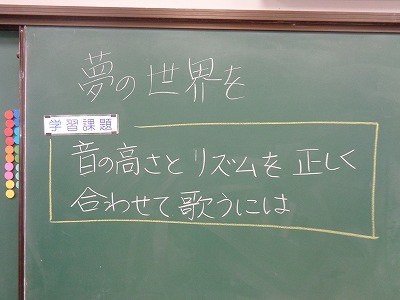 夢の世界を
学習課題
音の高さとリズムを正しく
合わせて歌うには